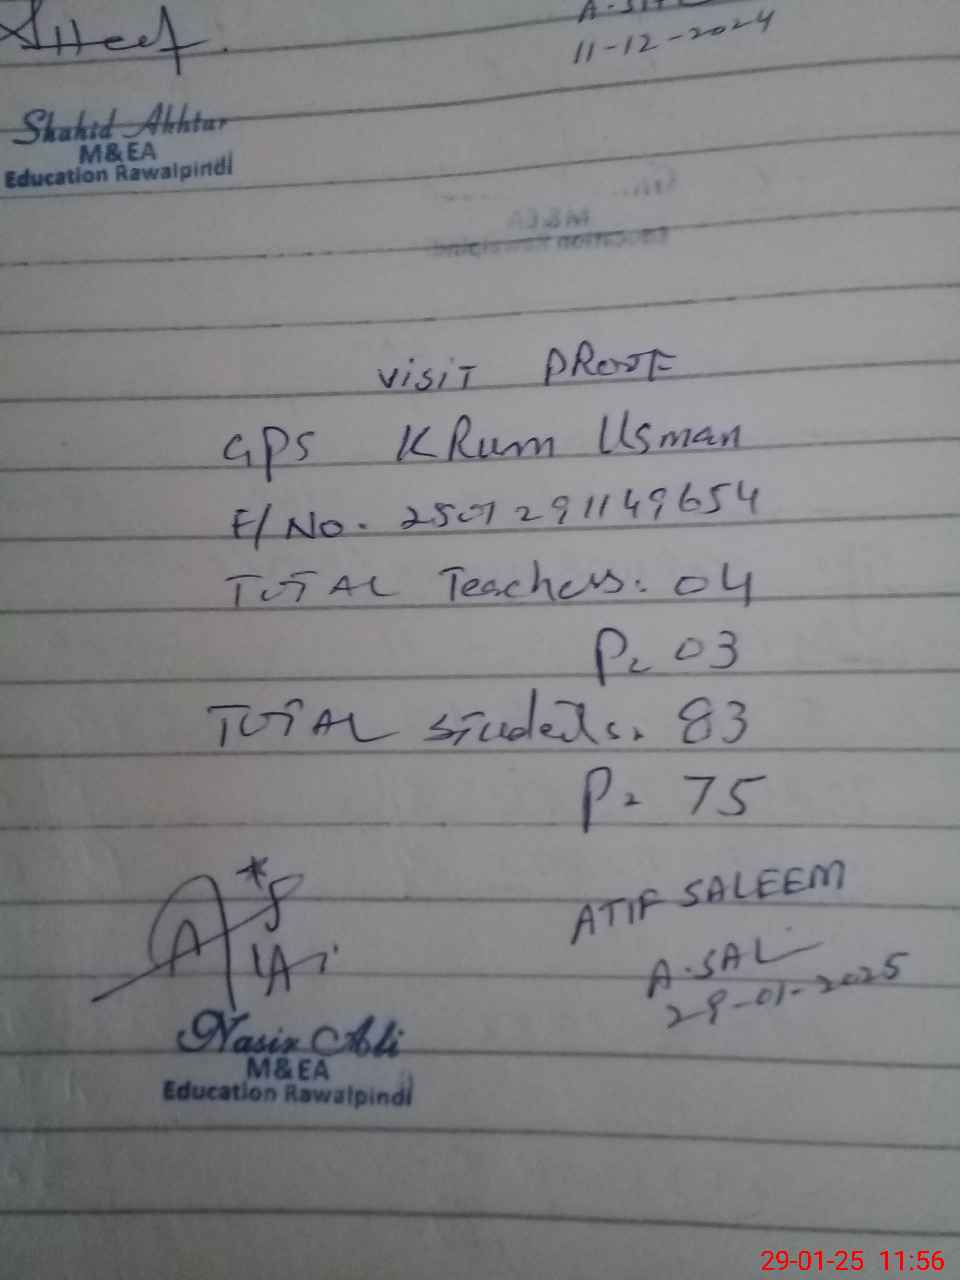 11-12-2024
Shahid Akhtar
M&EA
Education Rawalpindi
M&EA
Education Rawalpindi
VISIT PROOF
GPS KRum Usman
F/No. 2501291149654
TOTAL Teachers: 04
P= 03
TOTAL Students. 83
P= 75
ATIF SALEEM
A.SAL
29-01-2025
Nasir Ali
M&EA
Education Rawalpindi
29-01-25 11:56